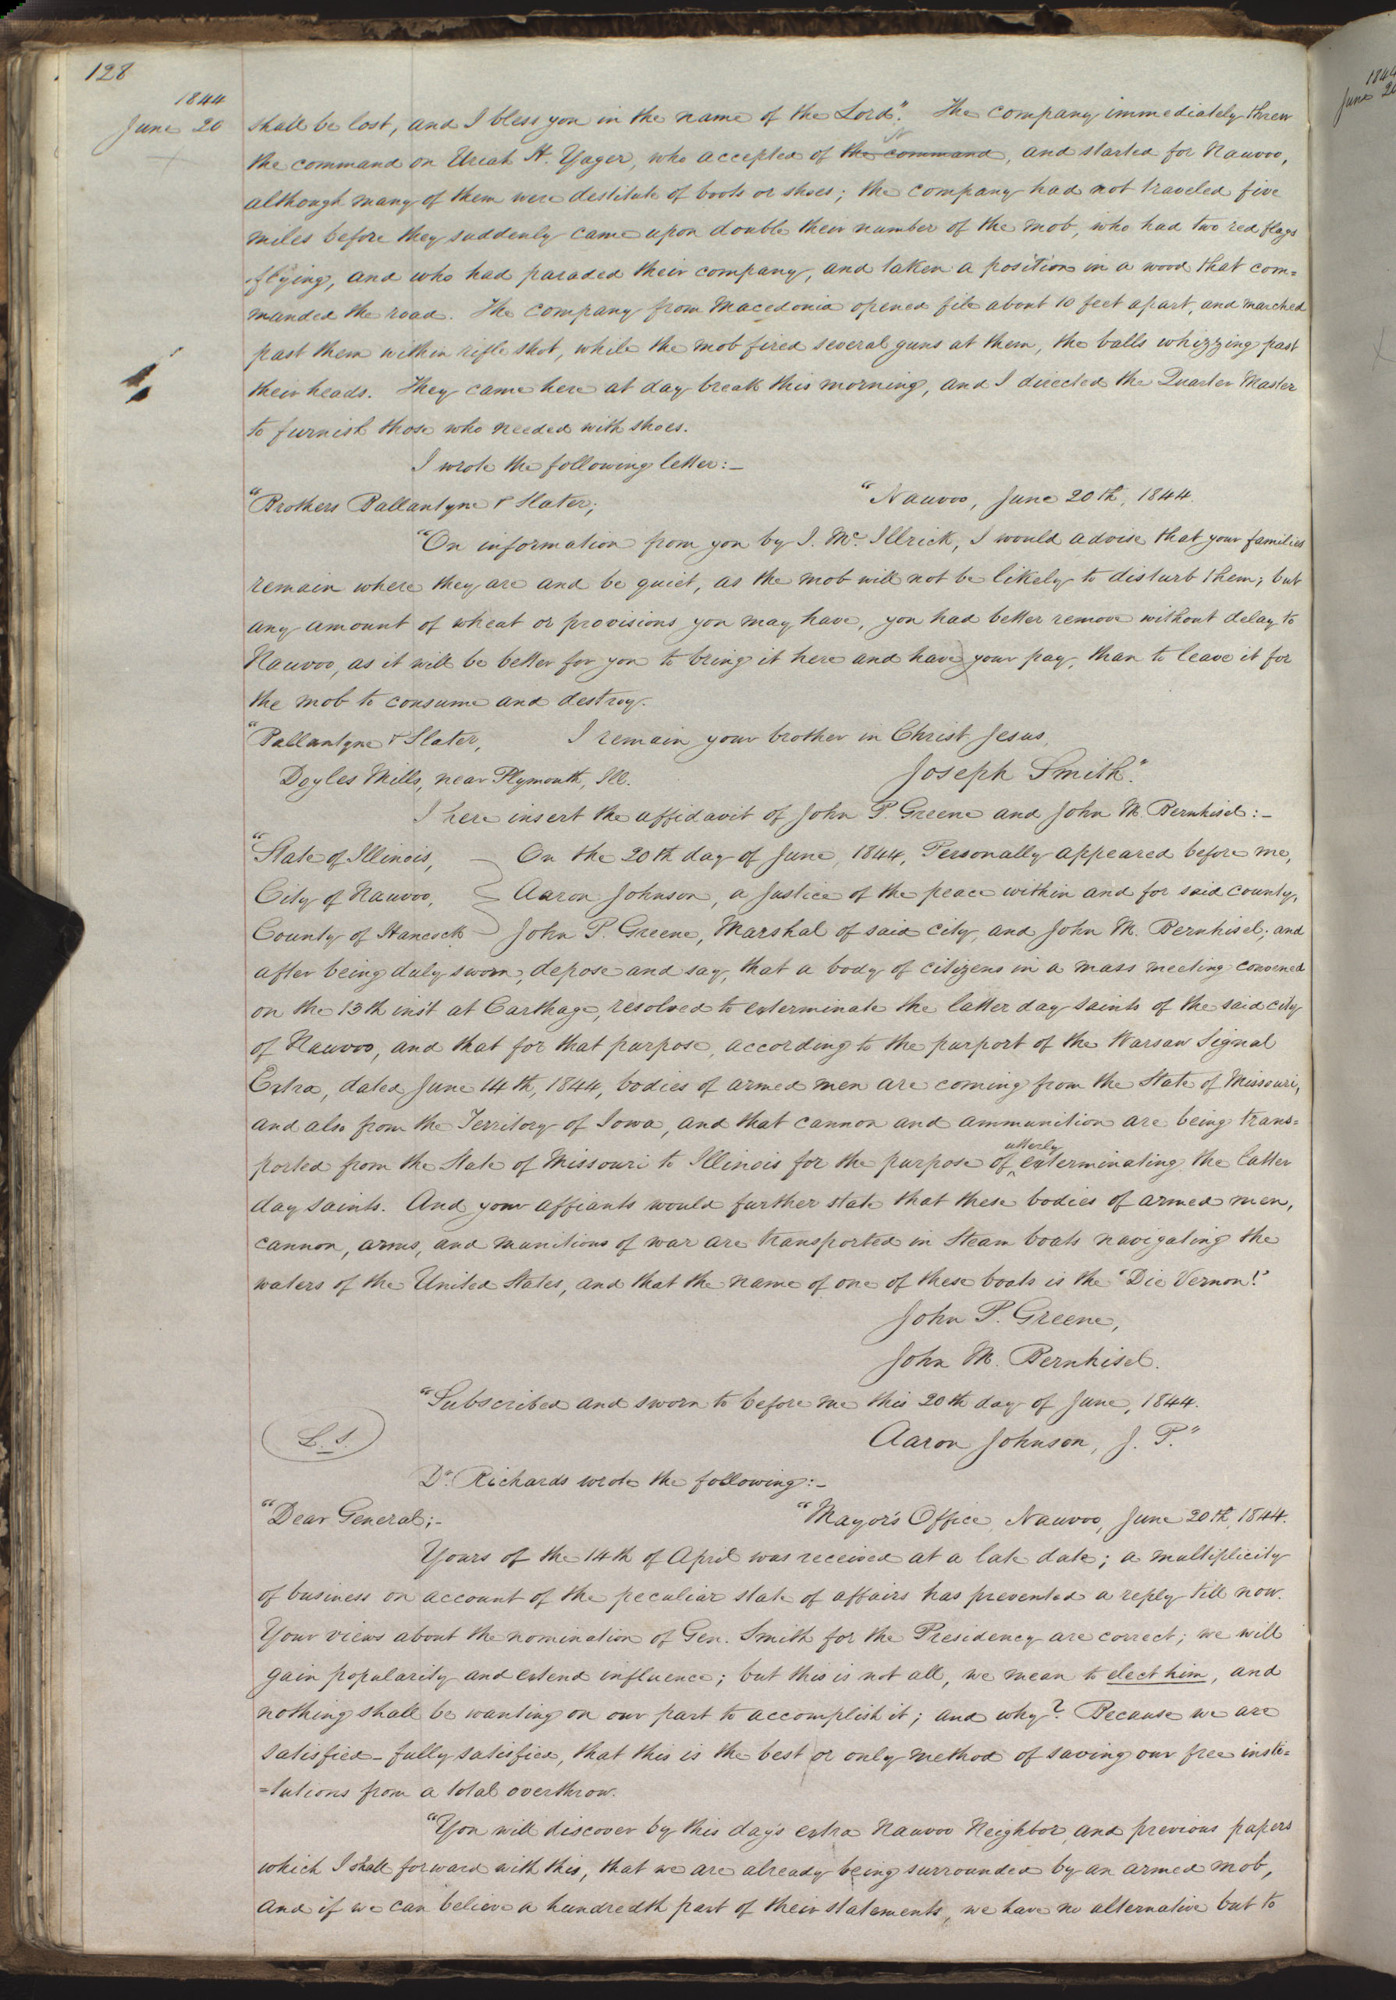 128
1844
June 20
shall be lost, and I bless you in the name of the Lord." The company immediately threw
the command on Uriah H. Yager, who accepted of it the command, and started for Nauvoo,
although many of them were destitute of boots or shoes; the company had not traveled five
miles before they suddenly came upon double their number of the mob, who had two red flags
flying, and who had paraded their company, and taken a position in a wood that com=
manded the road. The company from Macedonia opened file about 10 feet apart, and marched
past them within rifle shot, while the mob fired several guns at them, the balls whizzing past
their heads. They came here at day break this morning, and I directed the Quarter Master
to furnish those who needed with shoes.
I wrote the following letter:–
"Brothers Ballantyne & Slater; "Nauvoo, June 20th, 1844.
"On information from you by J. Mc. Illrick, I would advise that your families
remain where they are and be quiet, as the mob will not be likely to disturb them; but
any amount of wheat or provisions you may have, you had better remove without delay to
Nauvoo, as it will be better for you to bring it here and have your pay, than to leave it for
the mob to consume and destroy.
"Ballantyne & Slater, I remain your brother in Christ Jesus,
Doyles Mills, near Plymouth, Ill. Joseph Smith."
I here insert the affidavit of John P. Greene and John M. Bernhisel:–
"State of Illinois, On the 20th day of June, 1844, Personally appeared before me,
City of Nauvoo, Aaron Johnson, a Justice of the peace within and for said county,
County of Hancock John P. Greene, Marshal of said city, and John M. Bernhisel; and
after being duly sworn, depose and say, that a body of citizens in a mass meeting convened
on the 13th inst at Carthage, resolved to exterminate the latter day saints of the said city
of Nauvoo, and that for that purpose, according to the purport of the Warsaw Signal
Extra, dated June 14th, 1844, bodies of armed men are coming from the State of Missouri,
and also from the Territory of Iowa, and that cannon and ammunition are being trans=
ported from the State of Missouri to Illinois for the purpose of utterly exterminating the latter
day saints. And your affiants would further state that these bodies of armed men,
cannon, arms, and munitions of war are transported in Steam boats navigating the
waters of the United States, and that the name of one of these boats is the "Die Vernon."
John P. Greene,
John M. Bernhisel.
"Subscribed and sworn to before me this 20th day of June, 1844.
L. S. Aaron Johnson, J. P."
Dr. Richards wrote the following:–
"Dear General;– "Mayor's Office, Nauvoo, June 20th, 1844.
Yours of the 14th of April was received at a late date; a multiplicity
of business on account of the peculiar state of affairs has prevented a reply till now.
Your views about the nomination of Gen. Smith for the Presidency are correct; we will
gain popularity and extend influence; but this is not all, we mean to elect him, and
nothing shall be wanting on our part to accomplish it; and why? Because we are
satisfied– fully satisfied, that this is the best or only method of saving our free insti=
=tutions from a total overthrow.
"You will discover by this day's extra Nauvoo Neighbor and previous papers
which I shall forward with this, that we are already being surrounded by an armed mob,
and if we can believe a hundredth part of their statements, we have no alternative but to
1844
June 20